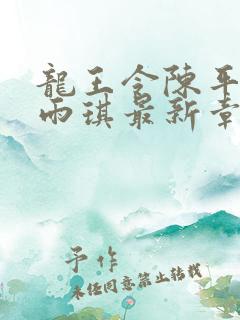 龍王令陳平
雨琪最新章
予作
未经同意禁止转载